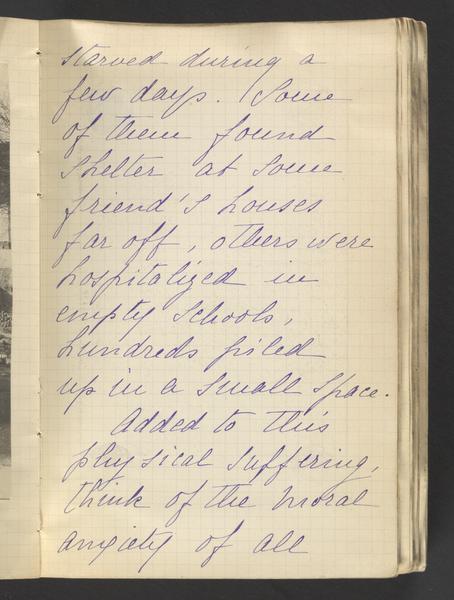 starved during a
few days. Some
of them found
shelter at some
friend's houses
far off, others were
hospitalized in
empty schools,
hundreds piled
up in a small space.
Added to this
physical suffering,
think of the moral
anxiety of all